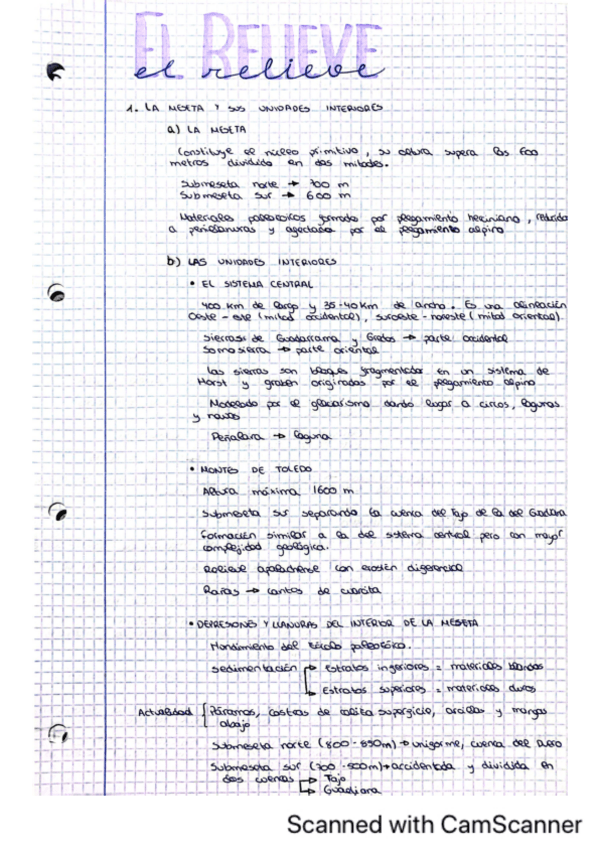 EL RELIEVE
el relieve
1. LA MESETA Y SUS UNIDADES INTERIORES
a) LA MESETA
Constituye el núcleo primitivo, su altura supera los 600
metros dividida en dos mitades.
Submeseta norte → 700 m
Submeseta sur → 600 m
Materiales paleozoicos formados por plegamiento herciniano, reducido
a penillanuras y afectados por el plegamiento alpino
b) LAS UNIDADES INTERIORES
• EL SISTEMA CENTRAL
400 km de largo y 35-40 km de ancho. Es una alineación
Oeste - este (mitad occidental), suroeste - noreste (mitad oriental).
sierras de Guadarrama y Gredos → parte occidental
Somosierra → parte oriental
Las sierras son bloques fragmentados en un sistema de
Horst y graben originados por el plegamiento alpino
Modelado por el glaciarismo dando lugar a circos, lagunas
y
Peñalara → laguna
• MONTES DE TOLEDO
Altura máxima 1600 m
Submeseta sur separando la cuenca del Tajo de la del Guadiana
Formación similar a la del sistema central pero con mayor
complejidad geológica.
Relieve apalachense con erosión diferencial
Rañas → cantos de cuarcita
• DEPRESIONES Y LLANURAS DEL INTERIOR DE LA MESETA
Hundimiento del zócalo paleozoico.
sedimentación → Estratos inferiores = materiales blandos
→ Estratos superiores = materiales duros
Actualidad { Páramos, costras de caliza superficie, arcillas y margas
abajo
Submeseta norte (800-850m) → uniforme, cuenca del Duero
Submeseta sur (700-500m) → accidentada y dividida en
dos cuencas → Tajo
→ Guadiana
Scanned with CamScanner